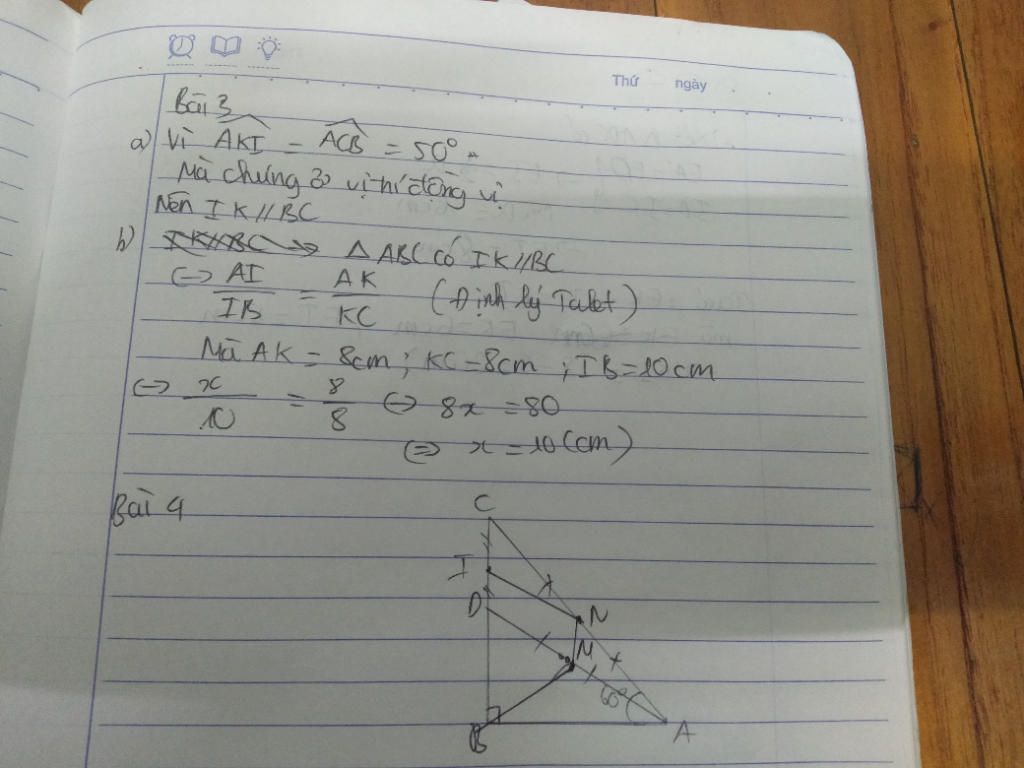 Thứ ngày
Bài 3
a) Vì AKI = ACB = 50°
Mà chúng ở vị trí đồng vị
Nên IK // BC
b) IK//BC → △ ABC có IK // BC
(=> AI/IB = AK/KC (Định lý Talet)
Mà AK = 8cm ; KC = 8cm ; IB = 10cm
(=> x/10 = 8/8 (=> 8x = 80
(=> x = 10 (cm)
Bài 4
C
I
D
N
M
60°
B A